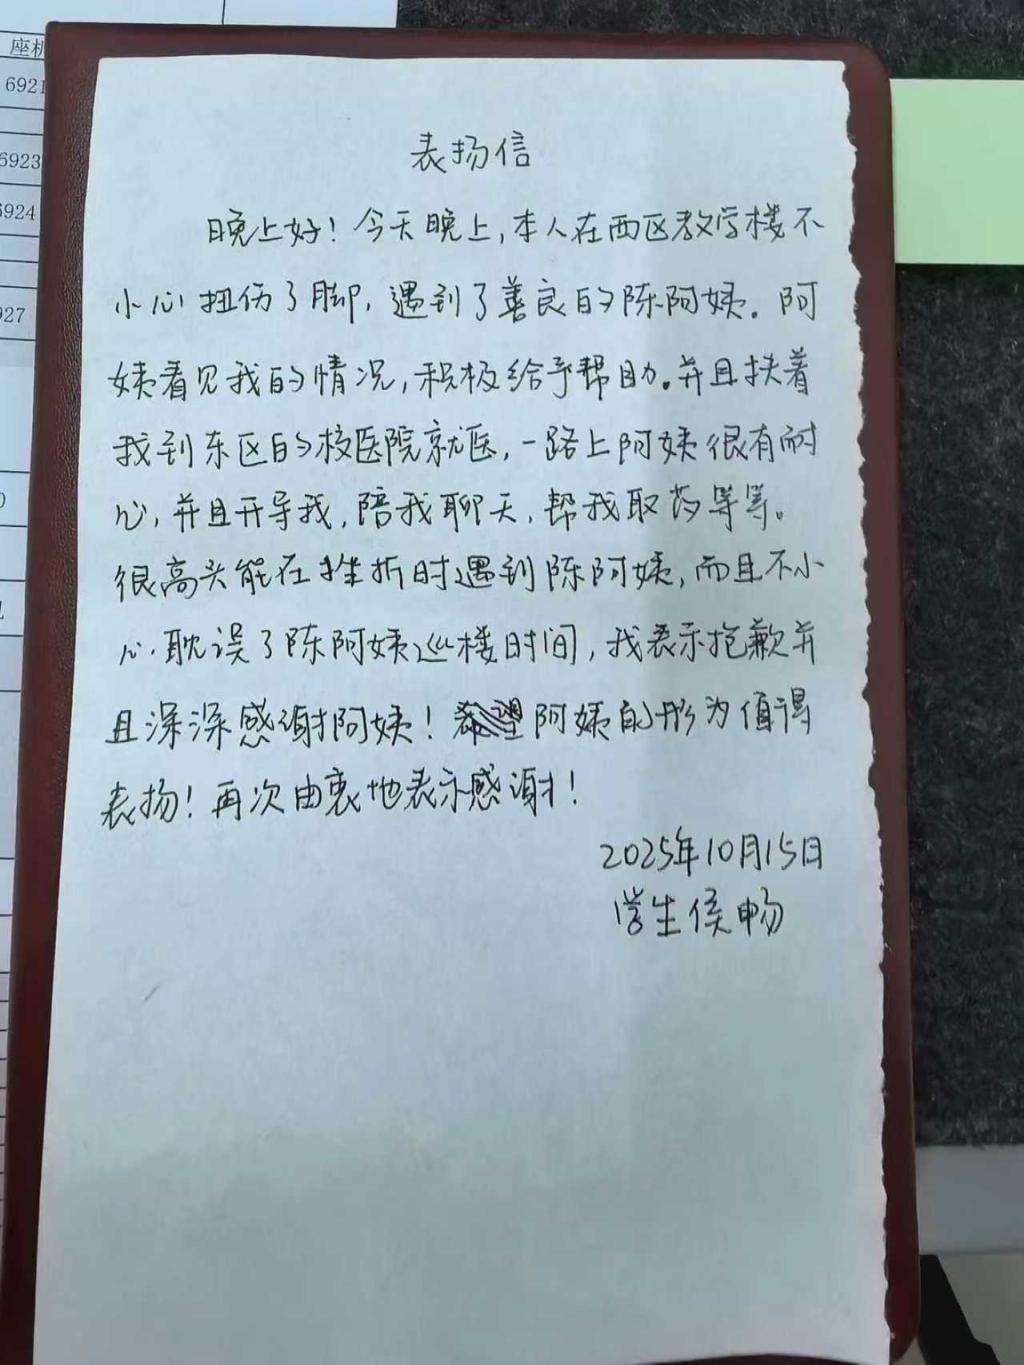 座机
6921
6923
6924
927
表扬信
晚上好！今天晚上，本人在西区教学楼不
小心扭伤了脚，遇到了善良的陈阿姨。阿
姨看见我的情况，积极给予帮助。并且扶着
我到东区的校医院就医，一路上阿姨很有耐
心，并且开导我，陪我聊天，帮我取药等等。
很高兴能在挫折时遇到陈阿姨，而且不小
心耽误了陈阿姨巡楼时间，我表示抱歉并
且深深感谢阿姨！阿姨的形为值得
表扬！再次由衷地表示感谢！
2025年10月15日
学生侯畅